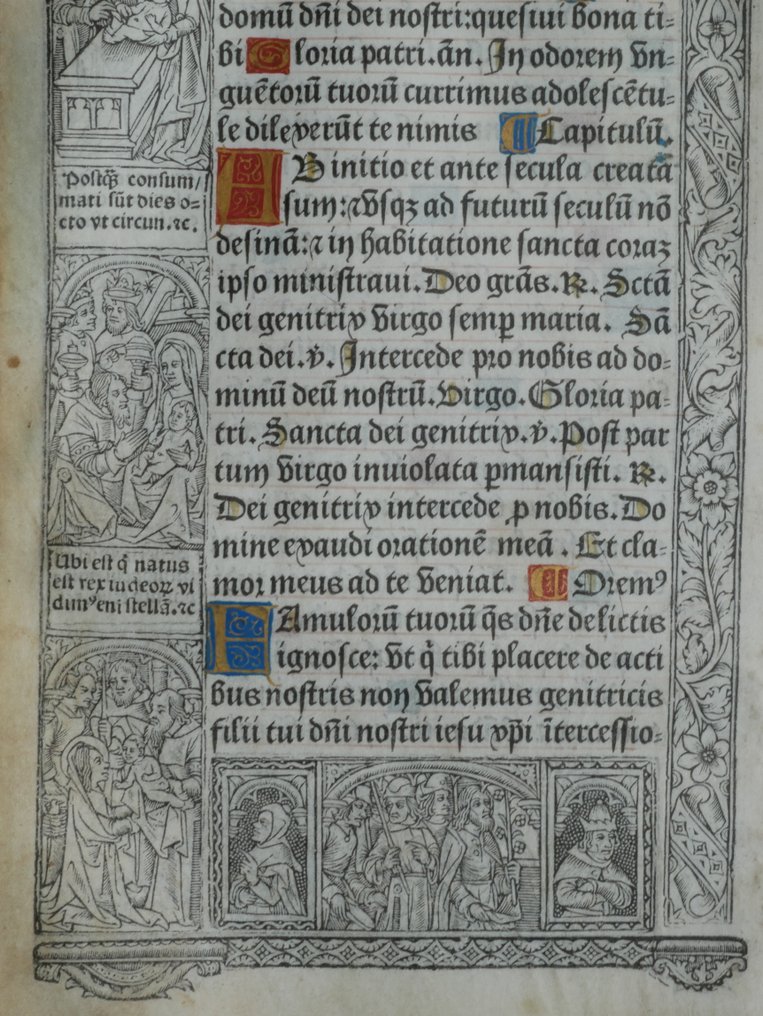 domū dñi dei nostri:quesiui bona ti=
bi Gloria patri.añ. In odorem vn=
guētorū tuorū currimus adolescētu=
le dilexerūt te nimis Capitulū.
AB initio et ante secula creata
sum:⁊ vsqꝫ ad futurū seculū nō
desinā:⁊ in habitatione sancta coraꝫ
ipso ministraui.Deo grās.℟. Sctā
dei genitrix virgo semꝑ maria. Sā
cta dei.℣. Intercede pro nobis ad do=
minū deū nostrū.Virgo.Gloria pa=
tri.Sancta dei genitrix.℣.Post par
tum virgo inuiolata ꝑmansisti. ℟.
Dei genitrix intercede ꝓ nobis.Do
mine exaudi orationē meā . Et cla=
mor meus ad te veniat. Oremꝰ
FAmulorū tuorū q̄s dñe delictis
ignosce: vt q̄ tibi placere de acti
bus nostris non valemus genitricis
filii tui dñi nostri iesu xp̄i ītercessio=
Postq̄ꝫ consum/
mati sūt dies o=
cto vt circun.⁊c.
Ubi est q̄ natus
est rex iudeoꝝ vi
dimꝰ eni stellā.⁊c